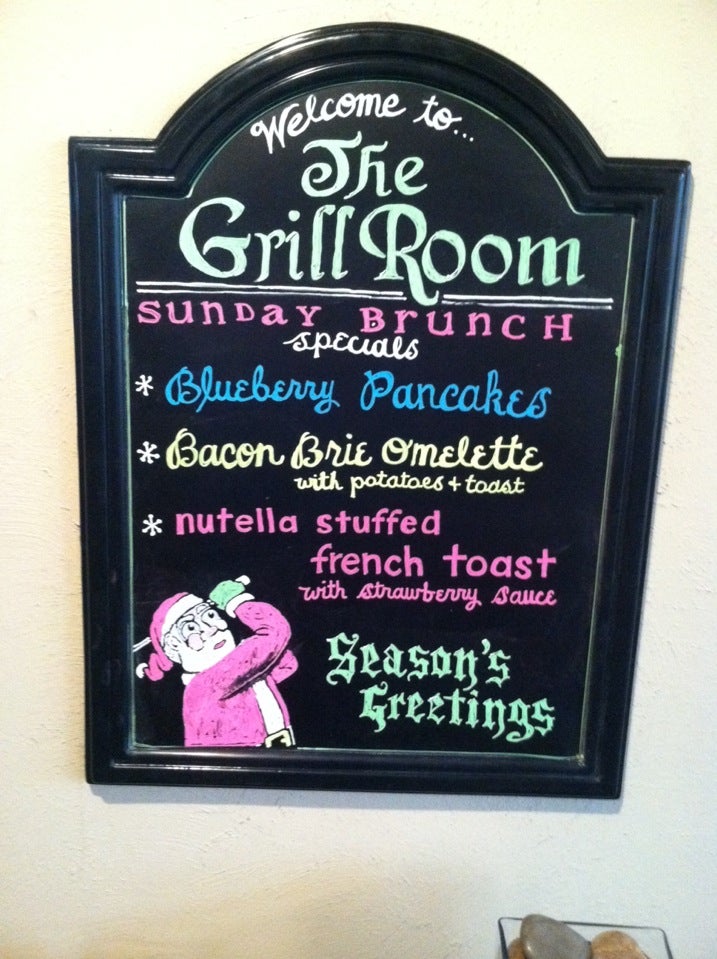 Welcome to...
The
Grill Room
Sunday Brunch
specials
* Blueberry Pancakes
* Bacon Brie Omelette
with potatoes + toast
* nutella stuffed
french toast
with strawberry sauce
Season's
Greetings